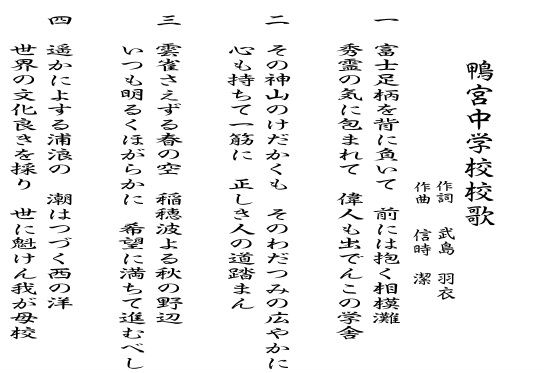 鴨宮中学校校歌
作詞 武島 羽衣
作曲 信時 潔
一 富士足柄を背に負いて 前には抱く相模灘
秀霊の気に包まれて 偉人も出でんこの学舎
二 その神山のけだかくも そのわだつみの広やかに
心も持ちて一筋に 正しき人の道踏まん
三 雲雀さえずる春の空 稲穂波よる秋の野辺
いつも明るくほがらかに 希望に満ちて進むべし
四 遥かによする浦浪の 潮はつづく西の洋
世界の文化良きを採り 世に魁けん我が母校